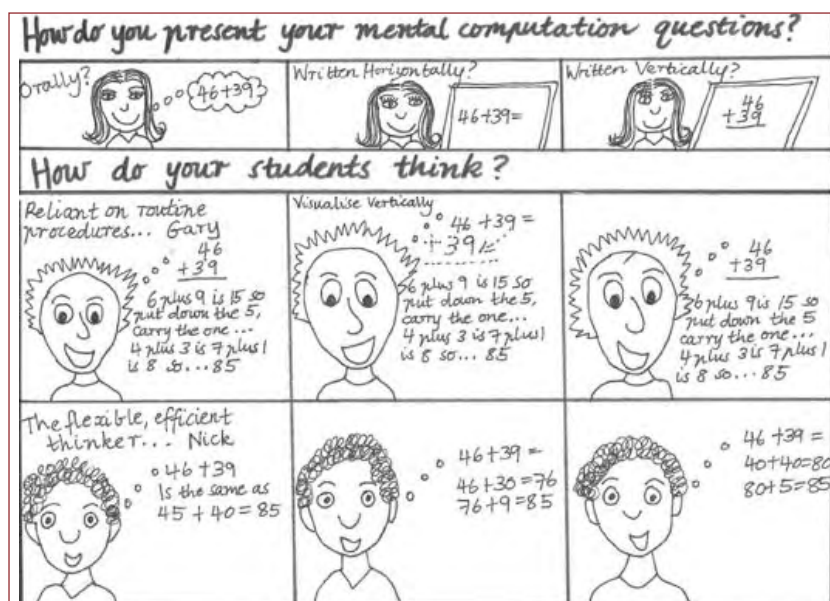 How do you present your mental computation questions?
Orally?
46+39
Written Horizontally?
46+39=
Written Vertically?
46
+39
How do your students think?
Reliant on routine
procedures... Gary
46
+39
6 plus 9 is 15 so
put down the 5,
carry the one...
4 plus 3 is 7 plus 1
is 8 so... 85
Visualise Vertically
46 +39 =
+39
6 plus 9 is 15 so
put down the 5,
carry the one...
4 plus 3 is 7 plus 1
is 8 so... 85
46
+39
6 plus 9 is 15 so
put down the 5
carry the one...
4 plus 3 is 7 plus 1
is 8 so... 85
The flexible, efficient
thinker... Nick
46 +39
Is the same as
45 + 40 = 85
46 +39 =
46 +30 =76
76 +9 = 85
46 +39 =
40+40=80
80+5=85